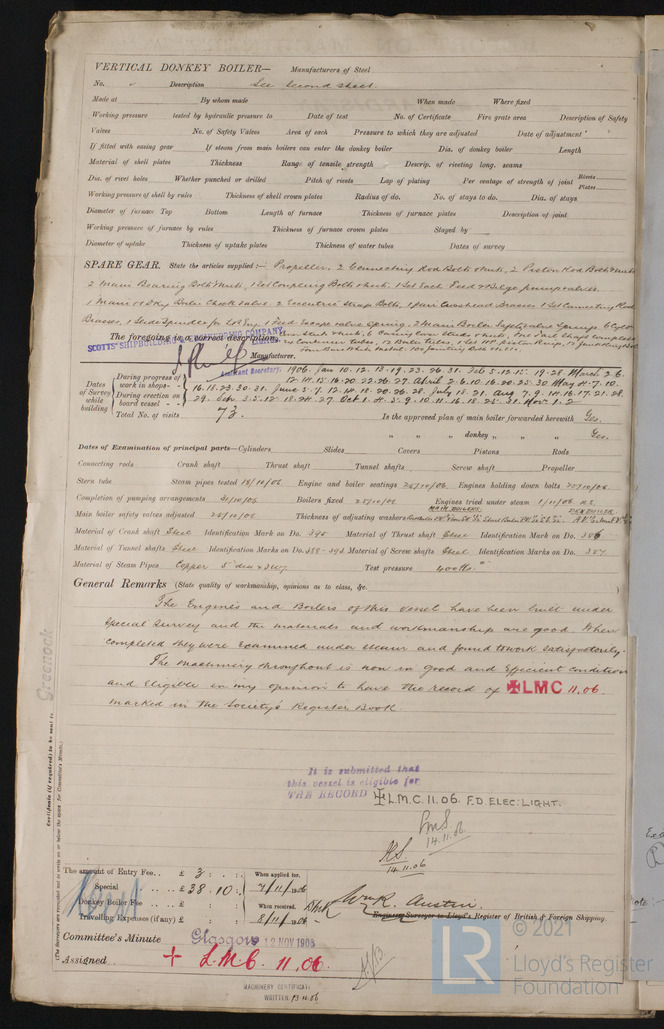 VERTICAL DONKEY BOILER— Manufacturers of Steel
No. Description See Second Sheet
Made at By whom made When made Where fixed
Working pressure tested by hydraulic pressure to Date of test No. of Certificate Fire grate area Description of Safety
Valves No. of Safety Valves Area of each Pressure to which they are adjusted Date of adjustment
If fitted with easing gear If steam from main boilers can enter the donkey boiler Dia. of donkey boiler Length
Material of shell plates Thickness Range of tensile strength Descrip. of riveting long. seams
Dia. of rivet holes Whether punched or drilled Pitch of rivets Lap of plating Per centage of strength of joint Rivets Plates
Working pressure of shell by rules Thickness of shell crown plates Radius of do. No. of stays to do. Dia. of stays
Diameter of furnace Top Bottom Length of furnace Thickness of furnace plates Description of joint
Working pressure of furnace by rules Thickness of furnace crown plates Stayed by
Diameter of uptake Thickness of uptake plates Thickness of water tubes Dates of survey
SPARE GEAR. State the articles supplied:— Propeller, 2 Connecting Rod Bolts & Nuts, 2 Piston Rod Bolts & Nuts
2 Main Bearing Bolts & Nuts, 1 Set Coupling Bolts & Nuts, 1 Set Each Feed & Bilge pump valves.
1 Main & 1 Dky Boiler Check Valve, 2 Eccentric Strap Bolts, 1 pair Crosshead Brasses 1 Set Connecting Rod
Brasses, 1 Slide Spindle for Eng. 1 Feed Escape valve Spring. 2 Main Boiler Safety valve Springs
The foregoing is a correct description,
SCOTTS' SHIPBUILDING & ENGINEERING COMPANY
Manufacturer.
Assistant Secretary.
Dates of Survey while building
During progress of work in shops - - 1906. Jan 10. 12. 13. 19. 23. 26. 31. Feb 5. 12. 15. 19. 28 March 2. 6.
12. 14. 15. 16. 20. 22. 26. 27. April 2. 6. 10. 16. 20. 25. 30 May 4. 7. 10.
During erection on board vessel - - - 16. 18. 23. 30. 31. June 5. 7. 12. 14. 18. 20. 26. 28. July 18. 21. Aug 7. 9. 14. 16. 17. 21. 28.
29. Sep 3. 5. 12. 18. 24. 27. Oct 1. 4. 5. 9. 10. 11. 16. 18. 25. 31. Nov. 1. 2
Total No. of visits 73. Is the approved plan of main boiler forwarded herewith Yes.
" " " donkey " " " Yes.
Dates of Examination of principal parts—Cylinders Slides Covers Pistons Rods
Connecting rods Crank shaft Thrust shaft Tunnel shafts Screw shaft Propeller
Stern tube Steam pipes tested 18/10/06 Engine and boiler seatings 25/10/06 Engines holding down bolts 25/10/06
Completion of pumping arrangements 31/10/06 Boilers fixed 25/10/06 Engines tried under steam 1/11/06
Main boiler safety valves adjusted Thickness of adjusting washers MAIN BOILERS DKY BOILER
Material of Crank shaft Steel Identification Mark on Do. 395 Material of Thrust shaft Steel Identification Mark on Do. 386
Material of Tunnel shafts Steel Identification Marks on Do. 388-393 Material of Screw shafts Steel Identification Marks on Do. 387
Material of Steam Pipes Copper 5" dia x 3 WG Test pressure 400 lbs "
General Remarks (State quality of workmanship, opinions as to class, &c. )
The Engines and Boilers of this vessel have been built under
special survey and the materials and workmanship are good. When
completed they were examined under steam and found to work satisfactorily.
The machinery throughout is now in good and efficient condition
and eligible in my opinion to have the record of ✠LMC 11.06.
marked in the Society's Register Book
It is submitted that
this vessel is eligible for
THE RECORD ✠L.M.C. 11.06. F.D. ELEC: LIGHT.
14.11.06
14.11.06
Certificate (if required) to be sent to Greenock
(The Surveyors are requested not to write on or below the space for Committee's Minute.)
The amount of Entry Fee.. £ 3 : . : . When applied for.
Special .. .. £ 38 . 10 : . 7/11/1906
Donkey Boiler Fee .. .. £ : : When received.
Travelling Expenses (if any) £ : : 8/11/1906
Wm R. Austin.
Engineer Surveyor to Lloyd's Register of British & Foreign Shipping.
Committee's Minute Glasgow 12 NOV 1906
Assigned + L.M.C. 11.06.
MACHINERY CERTIFICATE
WRITTEN 13.11.06
© 2021
LR
Lloyd's Register
Foundation